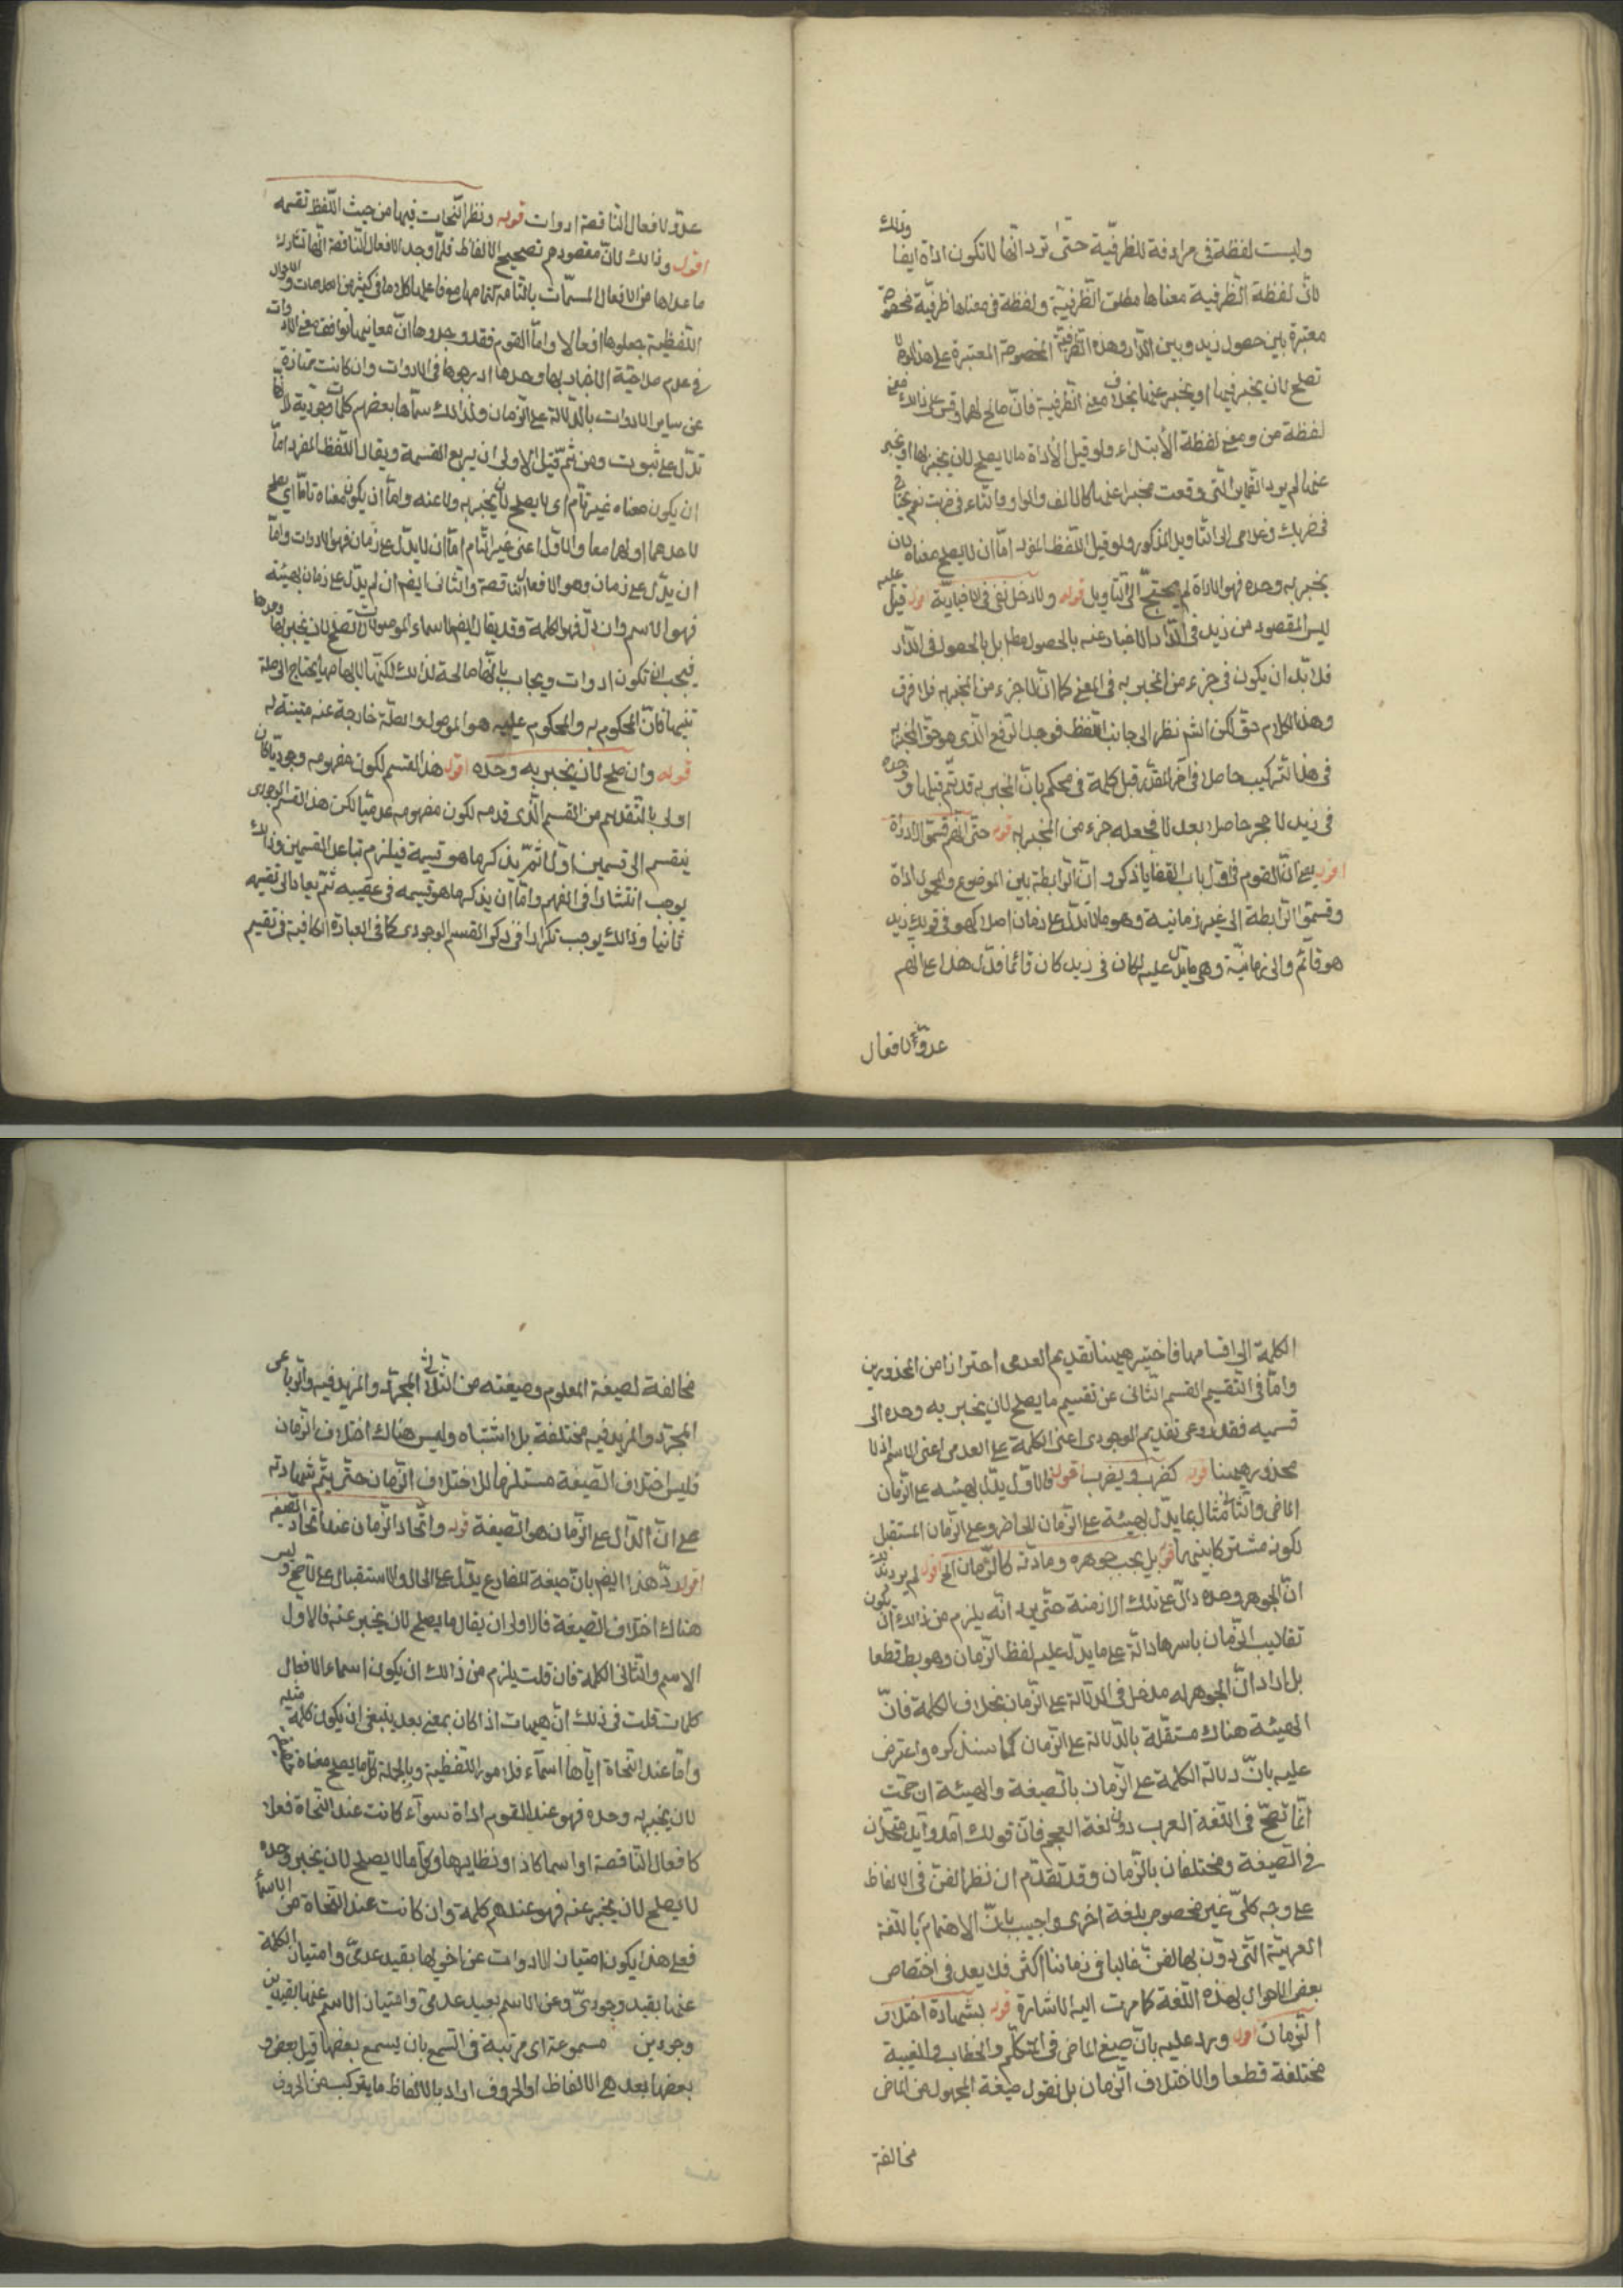 وليست لفظة في مرادفة للظرفية حتى ترد انها لا تكون اداة ايضا وذلك
لان لفظة الظرفية معناها مطلق الظرفية ولفظة في معناها ظرفية مخصوصة
معتبرة بين حصول زيد وبين الدار وهذه الظرفية المخصوصة المعتبرة على هذا الوجه لا
تصلح لان يخبر فيها او يخبر عنها بخلاف معنى الظرفية فانه صالح لهما وقس على ذلك معنى
لفظة من ومعنى لفظة الابتداء ولو قيل الاداة ما لا يصلح لان يخبر بها او يخبر
عنها لم يرد الضماير التي وقعت مخبرا عنها كالالف والواو والتاء في ضربت نعم يحتاج
في ضربك وغلامي الى التاويل المذكور ولو قيل اللفظ المفرد اما ان لا يصلح معناه لان
يخبر به وحده فهو الاداة لم يحتج الى التاويل قوله ولا دخل في الاخبار به اقول قيل عليه
ليس المقصود من زيد في الدار الاخبار عنه بالحصول مطلقا بل بالحصول في الدار
فلا بد ان يكون في جزء من المخبر به في المعنى كما ان لا جزء من المخبر به فلا فرق
وهذا الكلام حق لكن الشم نظر الى جانب اللفظ فوجد الرفع الذي هو حق المخبر به
في هذا التركيب حاصلا في المقدر قبل كلمة في فحكم بان المخبر به قد تم قبلها وحده
في زيد لا حجر حاصلا بعد لا فجعله جزء من المخبر به قوله حتى انهم قسموا الاداة
اقول يعني ان القوم في اول باب القضايا ذكروا ان الرابطة بين الموضوع والمحمول اداة
وقسموا الرابطة الى غير زمانية وهو ما لا تدل على زمان اصلا كهو في قولك زيد
هو قائم والى زمانية وهي ما يدل عليه ككان في زيد كان قائما فدل هذا على انهم
عدوا الافعال
عدوا الافعال الناقصة ادوات قوله ونظر النحات فيها من حيث اللفظ نفسه
اقول وذلك لان مقصودهم تصحيح الالفاظ فلما وجدوا الافعال الناقصة انها تشارك
ما عداها من الافعال المسمات بالتامة في كثير من العلامات والاحوال
اللفظية جعلوها افعالا واما القوم فقد وجدوها ان معانيها توافق معنى الادوات
في عدم صلاحية الاخبار بها وحدها ادرجوها في الادوات وان كانت ممتازة
عن ساير الادوات بالدلالة على الزمان ولذلك سماها بعضهم كلمات وجودية لانها
تدل على ثبوت ومن ثم قيل الاولى ان يربع القسمة ويقال اللفظ المفرد اما
ان يكون معناه غير تام اي لا يصلح لان يخبر به ولا عنه واما ان يكون معناه تاما اي يصلح
لاحدهما او لهما معا والاول اعني غير التام اما ان لا يدل على زمان فهو الادوات واما
ان يدل على زمان وهو الافعال الناقصة والثاني ايضا ان لم يدل على زمان بهيئته
فهو الاسم وان دل فهو الكلمة وقد يقال ايضا اسماء الموصولات لا تصلح لان يخبر بها وحدها
فيجب ان تكون ادوات ويجاب بانها صالحة لذلك لكنها لابهامها يحتاج الى صلة
تبينها فان المحكوم به والمحكوم عليه هو الموصول والصلة خارجة عنه مبينة له
قوله وان صلح لان يخبر به وحده اقول هذا القسم لكون مفهومه وجوديا كان
اولى بالتقديم من القسم الذي قدمه لكون مفهومه عدميا لكن هذا القسم الوجودي
ينقسم الى قسمين اولا ثم يذكر ما هو قسيمه فيلزم تباعد القسمين وذلك
يوجب انتشارا في الفهم واما ان يذكر ما هو قسيمه في عقيبه ثم يعاد الى تقسيمه
ثانيا وذلك يوجب تكرارا في ذكر القسم الوجودي كما في العبارة الكافية في تقسيم
الكلمة الى اقسامها فاختير ههنا تقديم العدمي احترازا من المحذورين
واما في التقسيم القسم الثاني عن تقسيم ما يصلح لان يخبر به وحده الى
قسميه فقد روعي تقديم الوجودي اعني الكلمة على العدمي اعني الاسم اذ لا
محذور ههنا قوله كضرب ويضرب اقول فالاول يدل بهيئته على الزمان
الماضي والثاني مثال لما يدل بهيئته على الزمان الحاضر وعلى الزمان المستقبل
لكونه مشتركا بينهما قوله بل بحسب جوهره ومادته كالزمان الخ اقول لم يرد بذلك
ان الجوهر وحده دال على تلك الازمنة حتى يرد انه يلزم من ذلك ان يكون
تقاليب الزمان باسرها دالة على ما يدل عليه لفظ الزمان وهو بط قطعا
بل اراد ان الجوهر له مدخل في الدلالة على الزمان بخلاف الكلمة فان
الهيئة هناك مستقلة بالدلالة على الزمان كما سنذكره واعترض
عليه بان دلالة الكلمة على الزمان بالصيغة والهيئة ان صحت
انما تصح في اللغة العرب دون لغة العجم فان قولك آمد وآيد متحدان
في الصيغة ومختلفان بالزمان وقد تقدم ان نظر الفن في الالفاظ
على وجه كلي غير مخصوص بلغة اخرى واجيب بان الاهتمام باللغة
العربية التي دون بها الفن غالبا في زماننا اكثر فلا بعد في اختصاص
بعض الاحوال بهذه اللغة كما مرت اليه الاشارة قوله بشهادة اختلاف
الزمان اقول ويرد عليه بان صيغ الماضي في التكلم والخطاب والغيبة
مختلفة قطعا ولا اختلاف الزمان بل نقول صيغة المجهول من الماضي
مخالفة
مخالفة لصيغة المعلوم وصيغته من الثلاثي المجرد والمزيد فيه والرباعي
المجرد والمزيد فيه مختلفة بلا اشتباه وليس هناك اختلاف الزمان
فليس اختلاف الصيغة مستلزما لاختلاف الزمان حتى يتم شهادته
على ان الدال على الزمان هو الصيغة قوله واتحاد الزمان عند اتحاد الصيغة
اقول رد هذا ايضا بان صيغة المضارع يدل على الحال والاستقبال على الاصح وليس
هناك اختلاف الصيغة فالاولى ان يقال ما يصلح لان يخبر عنه فالاول
الاسم والثاني الكلمة فان قلت يلزم من ذلك ان يكون اسماء الافعال
كلمات قلت في ذلك ان هيهات اذا كان بمعنى بعد ينبغي ان يكون كلمة مثله
واما عند النحاة اياها اسماء فلامور اللفظية وبالجملة كل ما يصلح معناه
لان يخبر به وحده فهو عند القوم اداة سواء كانت عند النحاة فعلا
كافعال الناقصة او اسما كاذا ونظايرها وكل ما لا يصلح لان يخبر وحده
لا يصلح لان يخبر عنه فهو عندهم كلمة وان كانت عند النحاة من الاسماء
فعلى هذا يكون امتياز الادوات عن اخويها بقيد عدمي وامتياز الكلمة
عنها بقيد وجودي وعن الاسم بقيد عدمي وامتياز الاسم عنها بقيدين
وجودين مسموعة اي مرتبة في السمع بان يسمع بعضها قبل بعض و
بعضها بعد هي الالفاظ او الحروف اراد بالالفاظ ما يتركب من الحروف